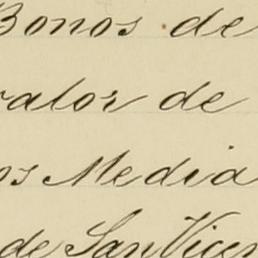 Bonos de
valor de
os Media
de San Vicen